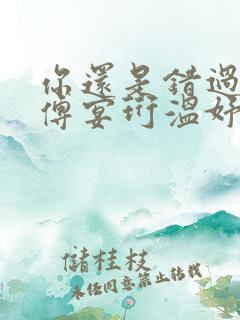 你還是錯過
傅宴珩溫妤
儲桂枝
未經同意禁止轉載